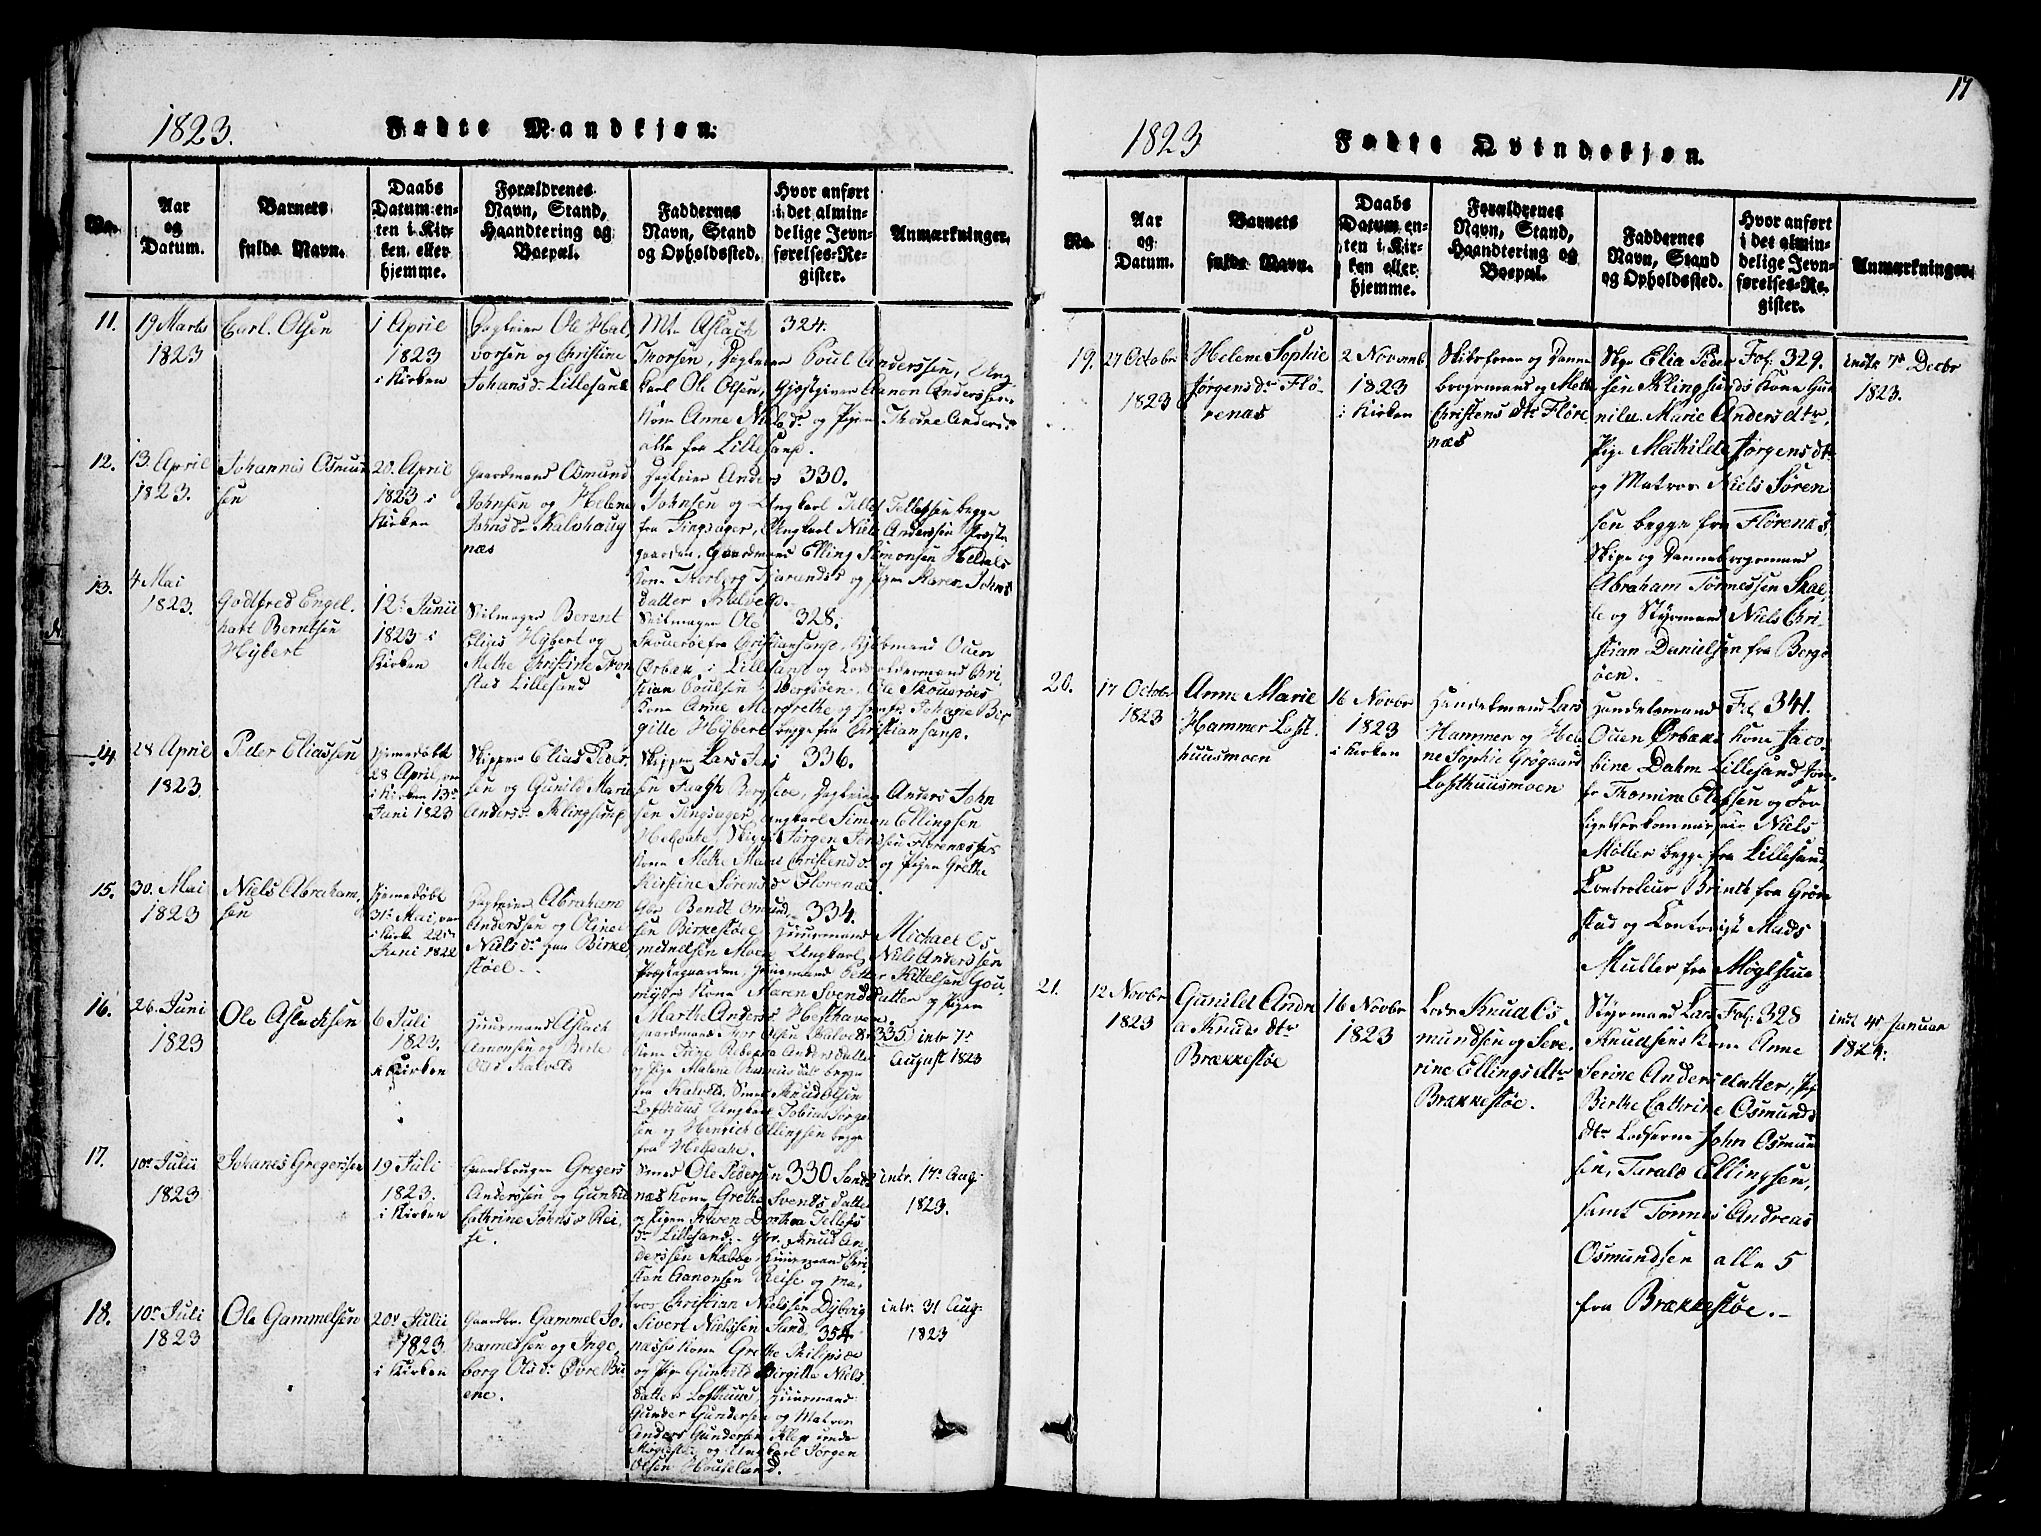 17
1823.
Fødte Mandkjøn.
No.
Aar og Datum.
Barnets fulde Navn.
Daabs Datum enten i Kirken eller hjemme.
Forældrenes Navn, Stand, Haandtering og Boepæl.
Faddernes Navn, Stand og Opholdssted.
Hvor anført i det almindelige Jevnførelses-Register.
Anmærkninger.
11.
19 Marts
1823
Carl. Olsen
1 April
1823
i Kirken
Ole Hal,
vorsen og Christine
Johansdr Lillesand
Mr Aslach
Thorsen, Poul Anderssen, Ung
karl Ole Olsen, Gjæstgiver Aanon Anderssens
Kone Anne Nielsdr og Pigen Thorine Andersdr
alle fra Lillesand.
324.
12.
13 April
1823.
Johannes Osmund
sen
20 April
1823 i
Kirken
Gaardmand Osmund
Johnsen og Helene
Kalvehaug
næs
Anders
Johnsen og Ungkarl Tellef Tellefsen begge
fra Tingsager, Ungkarl Niels Anderssen Præste
gaarden, Gaardmand Elling Simonsen Heldals
Kone Thorborg og Pigen Karen Johns
datter Kalvehg.
330.
13.
4 Mai
1823.
Godtfred Engel,
hart Berntsen
Hybert
12te Junii
1823 i
Kirken
Seilmager Berent
Elias Hybert og
Methe Christine Tron
stad Lillesand
Seilmager Ole
Skouerøe fra Christiansand, Kjøbmand Ouen
Ørbæk i Lillesand og Lods Chri
stian Poulsen Bergsøen, Ole Skouerøes
Kone Anne Margrethe og Johanne Bir
gitte Hybert begge fra Christiansand.
328.
14.
28 April
1823
Peder Eliassen
Hjemedøbt
28 April,
i Kirken 13de
Juni 1823
Skipper Elias Peder
sen og Gunild Marie
Andersdr
Skipper Lars Jen
sen Bergsøe, Anders John
sen Tingsager, Ungkarl Simon Ellingsen
Heldale, Skip Jørgen Florenæsses
Kone Methe Marie Christensdr og Pigen Grethe
Kirstine Sørensdr Florenæs.
336.
15.
30. Mai
1823
Niels Abraham,
sen
Hjemedøbt
31te Mai,
i Kirke 22de
Juni 1823
Abraham
Anderssen og Oline
Nielsdr Birke
støel.
Gbr. Bendt Omund
sen Birkestøel Huusmand Michael Os
mundsen Moen Ungkarl Niels Anderssen
Præstegaarden, Huusmand Petter Kittelsen
Kone Maren Svendsdatter og Pigen
Marthe Andersdr Hesthaven.
334.
16.
26. Juni
1823
Ole Aslachsen
6 Juli
1823.
i Kirken
Huusmand Aslach
Aanonsen og Berte
Olsdr Kalvild
Gaardmand Olsen Kalvild
Kone Rebekka Anders datter
og Pige Malene begge
fra Kalvild, Smed Knud Olsen
Lofthuus Ungkarl Tobias Jørgen
sen og Henrich Ellingsen begge
fra Heldale.
335
intr 7de
August 1823
17.
10de Julii
1823
Johanes Gregerssen
19 Juli
1823.
i Kirken
Gaardbruger Gregers
Anderssen og Gunild
Cathrine Johnsdr Rei,
se.
Smed Ole Pedersen Sand
næs Kone Grethe Svends datter
og Pigen Karen Dorthea Tellefs
dr Lillesand. Gbr. Knud An
derssen Huusmand Chri
sten Aanonsen Reise og Ma
tros Christian Nielssen Dybvig
330
intr. 17de Aug.
1823.
18.
10de Juli
1823
Ole Gammelsen
20de Julii
1823.
i Kirken
Gaardbr. Gammel Jo
hannessen og Inge,
borg Olsdr Øvre Bu
ene.
Sivert Nielssen Sand
næsses Kone Grethe Philipsdr
og Pige Gunhild Birgitte Niels
datter Lofthuus, Huusmand
Gunder Gundersen og Matros
Anders Gundersen
og Ungkarl Jørgen
Olsen Houseland.
354
intr. 31 Aug.
1823
1823
Fødte Qvindekjøn.
No.
Aar og Datum.
Barnets fulde Navn.
Daabs Datum enten i Kirken eller hjemme.
Forældrenes Navn, Stand, Haandtering og Boepæl.
Faddernes Navn, Stand og Opholdssted.
Hvor anført i det almindelige Jevnførelses-Register.
Anmærkninger.
19.
27 Octobr
1823
Helene Sophie
Jørgensdr Flø
renæs
2 Novemb
1823
i Kirken
Skibsfører og Danne
brogsmand og Methe
Christensdtr Fløre
næs
Skpr Elia Peder
sen Klingsunds Kone Gu
nild Marie Anders dtr.
Pige Mathilde Jørgens dtr
og Matros Niels Søren
sen begge fra Flørenæs,
Skipr og Dannebrogsmand
Abraham Tønnessen Skal
le og Styrmand Niels Chri
stian Danielsen fra Borgs
øen.
Fol. 329.
intr 7de Decbr
1823.
20.
17 Octobr
1823
Anne Marie
Hammer Loft
huusmoen
16 Novbr
1823
i Kirken
Handelsmand Lars
Hammer og Hele
ne Sophie Grøgaard
Lofthuusmoen
Handelsmand
Ouen Ørbæks Kone Jaco
bine Dahm Lillesand
Thomine Elefsen og For
ligelseskommissair Niels
Møller begge fra Lillesand,
Controleur Brindt fra Grim
stad og Contorist Mads
Muller fra Møglestue
Fol 341.
21.
12 Novbr
1823
Gunild Andre
a Knuds dtr
Brækkestøe
16 Novbr
1823
Lods Knud Os
mundsen og Seve
rine Ellings dtr
Brækkestøe.
Styrmand Lars
Knudsens Kone Anne
Serine Anders datter, Pige
Birthe Cathrine Osmunds
dtr Lodserne John Osmun
sen, Tarald Ellingsen,
samt Tønnes Andreas
Osmundsen alle 5
fra Brækkestøe.
Fol. 328
intr 4de Januar
1824.